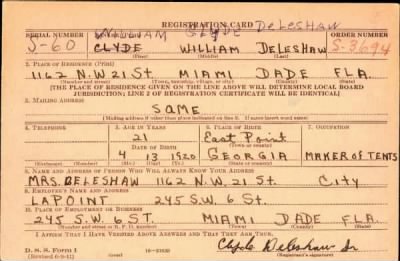 REGISTRATION CARD
WILLIAM Clyde DeLeshaw
SERIAL NUMBER ORDER NUMBER
S-60 CLYDE WILLIAM DELESHAW S-3694
(First) (Middle) (Last)
2. PLACE OF RESIDENCE (Print)
1162 N.W. 21 ST. MIAMI DADE FLA.
(Number and street) (Town, township, village, or city) (County) (State)
[THE PLACE OF RESIDENCE GIVEN ON THE LINE ABOVE WILL DETERMINE LOCAL BOARD
JURISDICTION; LINE 2 OF REGISTRATION CERTIFICATE WILL BE IDENTICAL]
3. MAILING ADDRESS
SAME
[Mailing address if other than place indicated on line 2. If same insert word same]
4. TELEPHONE 5. AGE IN YEARS 6. PLACE OF BIRTH 7. OCCUPATION
21 East Point
DATE OF BIRTH (Town or county)
4 13 1920 GEORGIA MAKER OF TENTS
(Exchange) (Number) (Mo.) (Day) (Yr.) (State or country)
8. NAME AND ADDRESS OF PERSON WHO WILL ALWAYS KNOW YOUR ADDRESS
MRS. DELESHAW 1162 N.W. 21 ST. CITY
9. EMPLOYER'S NAME AND ADDRESS
LAPOINT 245 S.W. 6 ST.
10. PLACE OF EMPLOYMENT OR BUSINESS
245 S.W. 6 ST. MIAMI DADE FLA.
(Number and street or R. F. D. number) (Town) (County) (State)
I AFFIRM THAT I HAVE VERIFIED ABOVE ANSWERS AND THAT THEY ARE TRUE.
Clyde Deleshaw Jr
D. S. S. Form 1
(over)
(Registrant's signature)